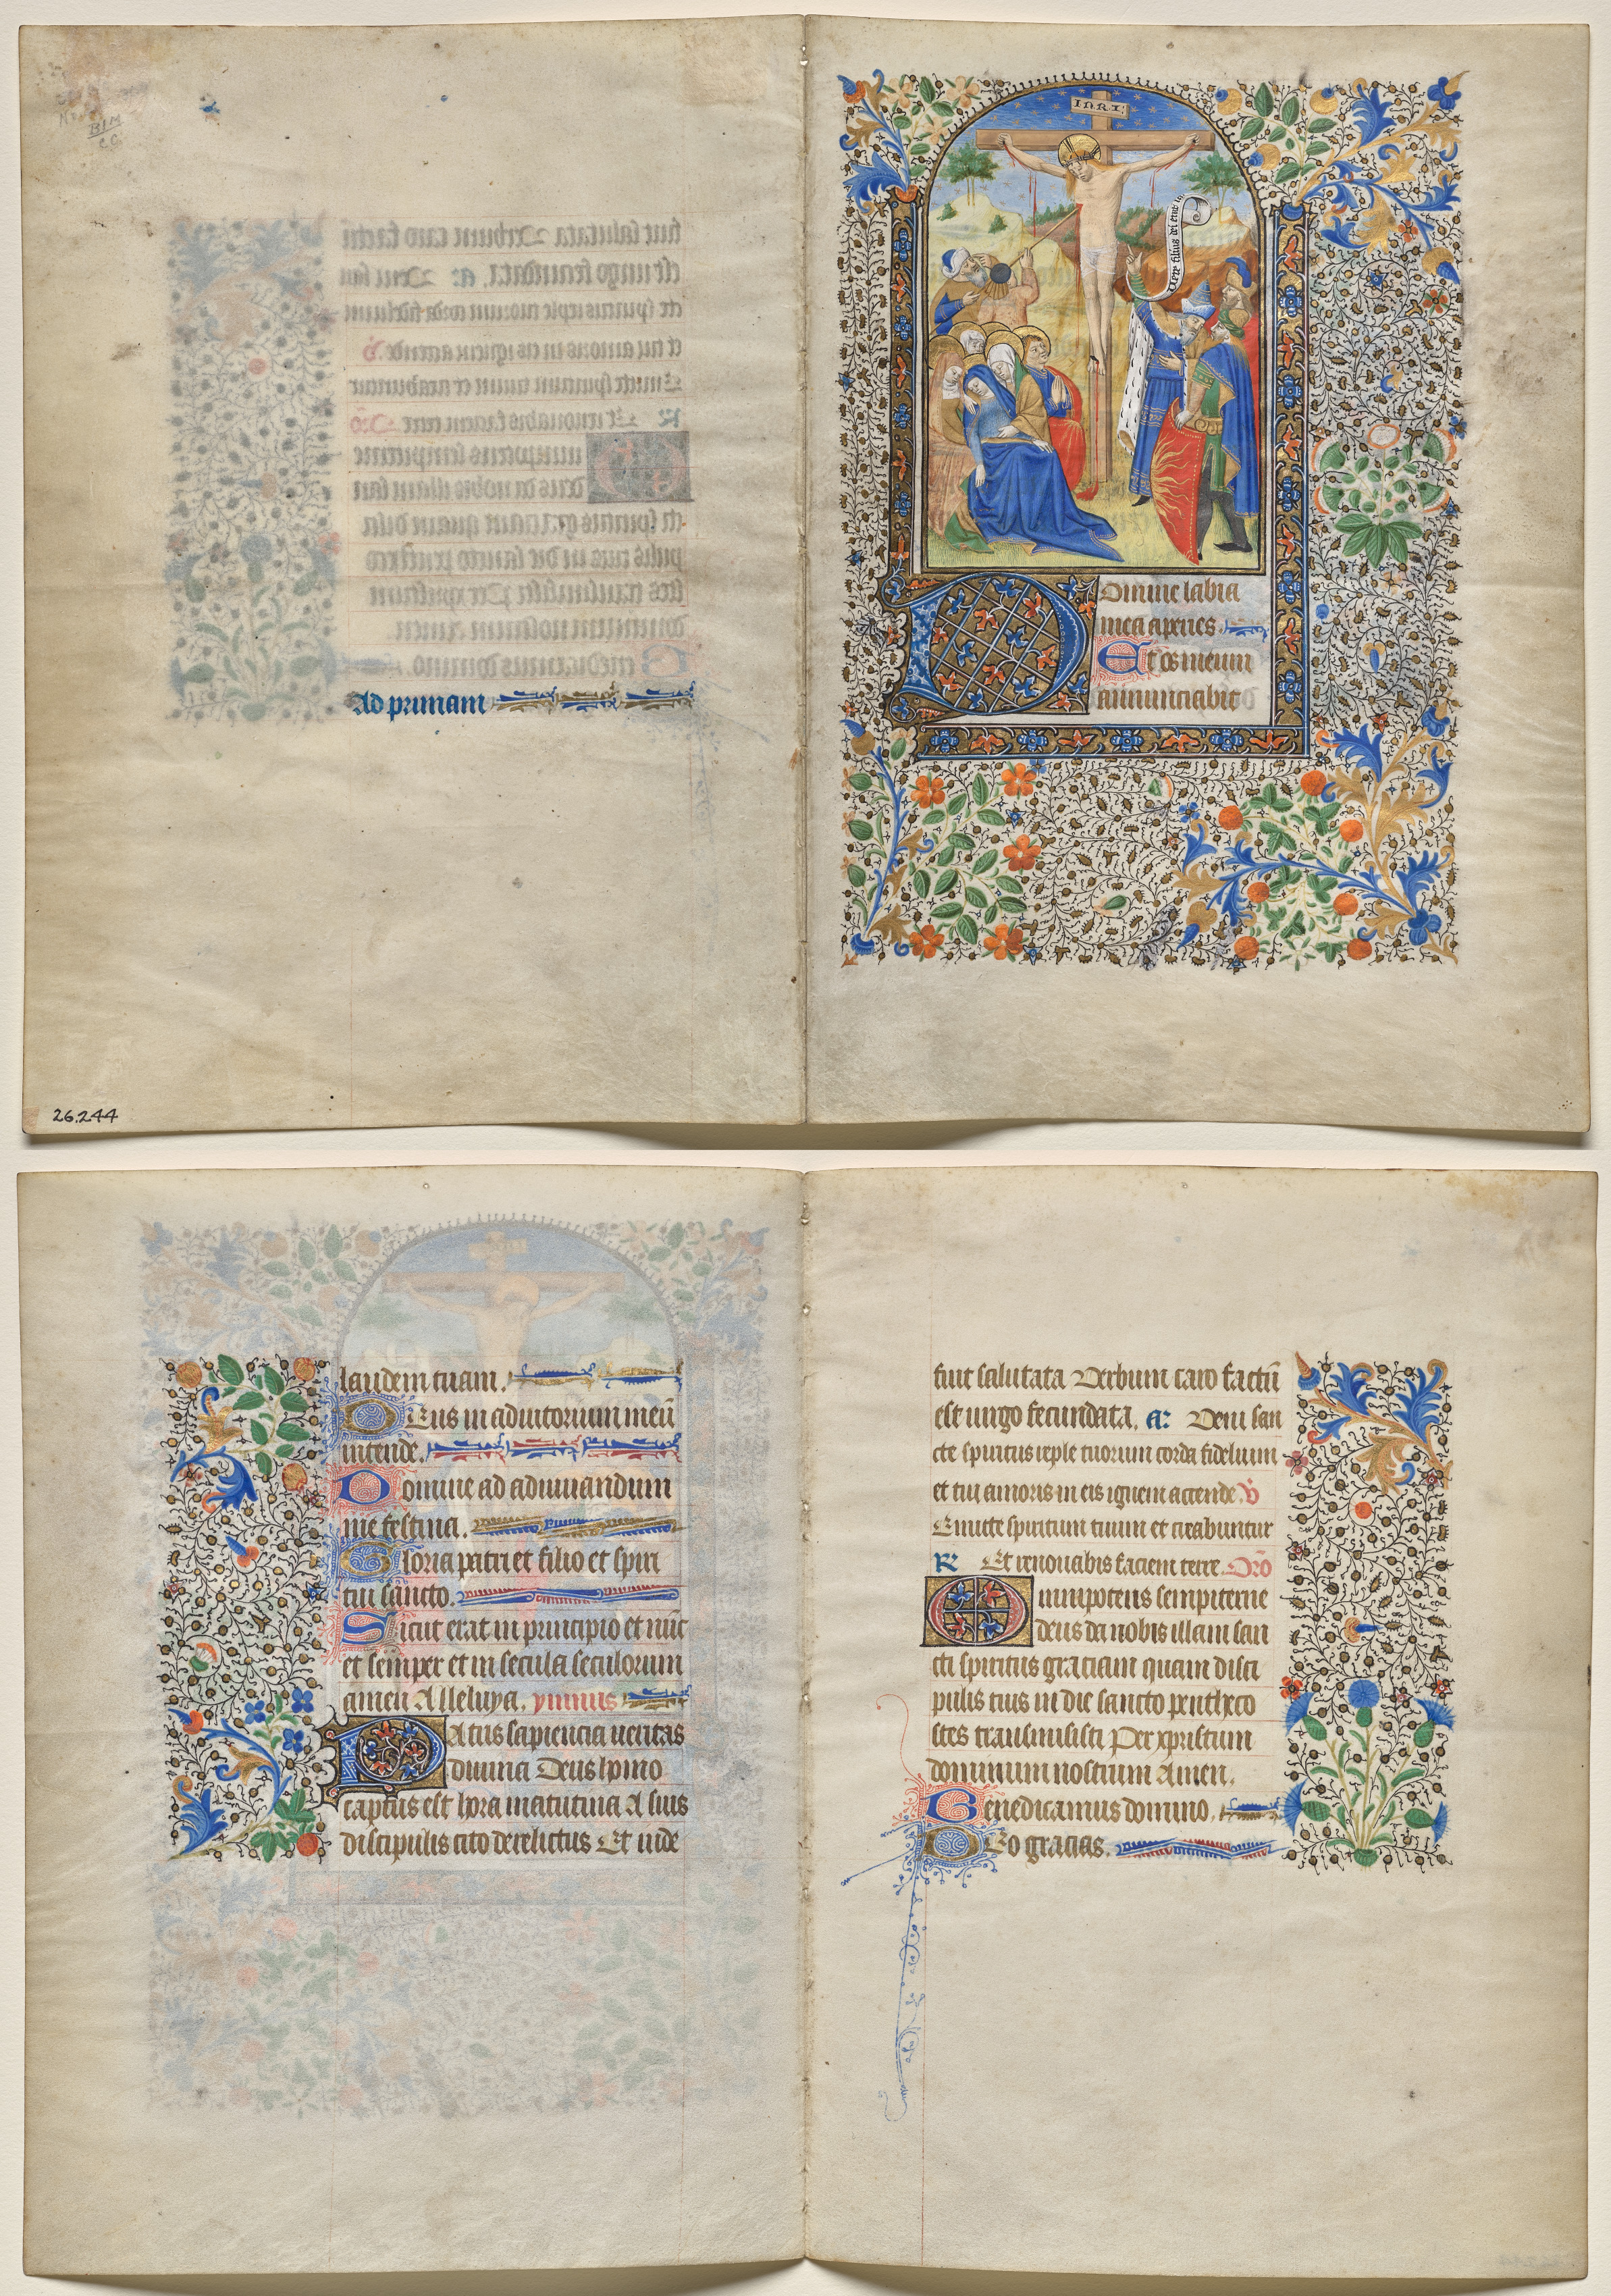 BIM
26.244
Ad primam
INRI
Vere filius dei erat
Domine labia
mea aperies
Et os meum
annunciabit
laudem tuam.
Deus in adiutorium meū
intende.
Domine ad adiuuandum
me festina.
Gloria patri et filio et spiri
tui sancto.
Sicut erat in principio et nūc
et semper et in secula seculorum
amen Alleluya. ymnus
Patris sapiencia ueritas
diuina Deus homo
captus est hora matutina A suis
discipulis cito derelictus Et iude
fuit salutata Verbum caro factū
est uirgo fecundata. a: Veni san
cte spiritus reple tuorum corda fidelium
et tui amoris in eis ignem accende. v̄
Emitte spiritum tuum et creabuntur
R: Et renouabis faciem terre Orō
Omnipotens sempiterne
deus da nobis illam san
cti spiritus graciam quam disci
pulis tuis in die sancto pentheco
stes transmisisti Per xpristum
dominum nostrum Amen.
Benedicamus domino.
Deo gracias.